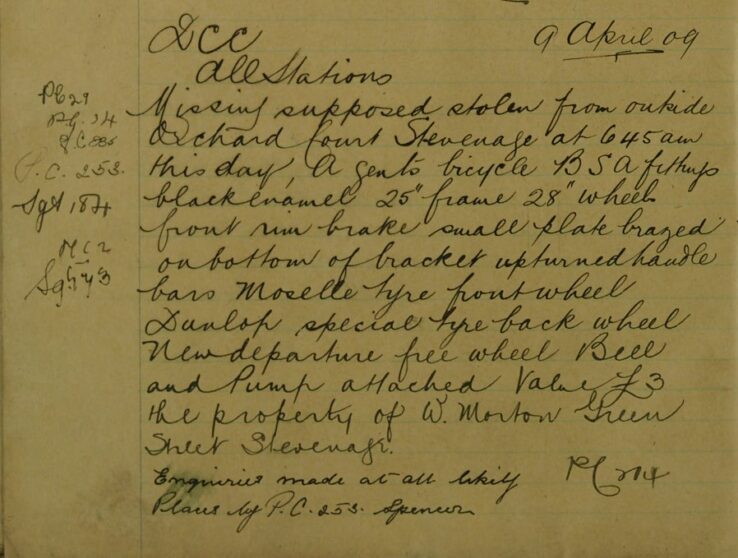 DCC
9 April 09
All Stations
Missing supposed stolen from outside
Orchard Court Stevenage at 645 am
this day, A gents bicycle B S A fittings
black enamel 25" frame 28" wheels
front rim brake small plate brazed
on bottom of bracket upturned handle
bars Moselle tyre front wheel
Dunlop special tyre back wheel
New departure free wheel Bell
and Pump attached Value £3
the property of W. Morton Green
Street Stevenage.
Enquiries made at all likely
Places by P.C. 253. Spencer
PC 214
PC 29
P.C. 253.
Sgt 184